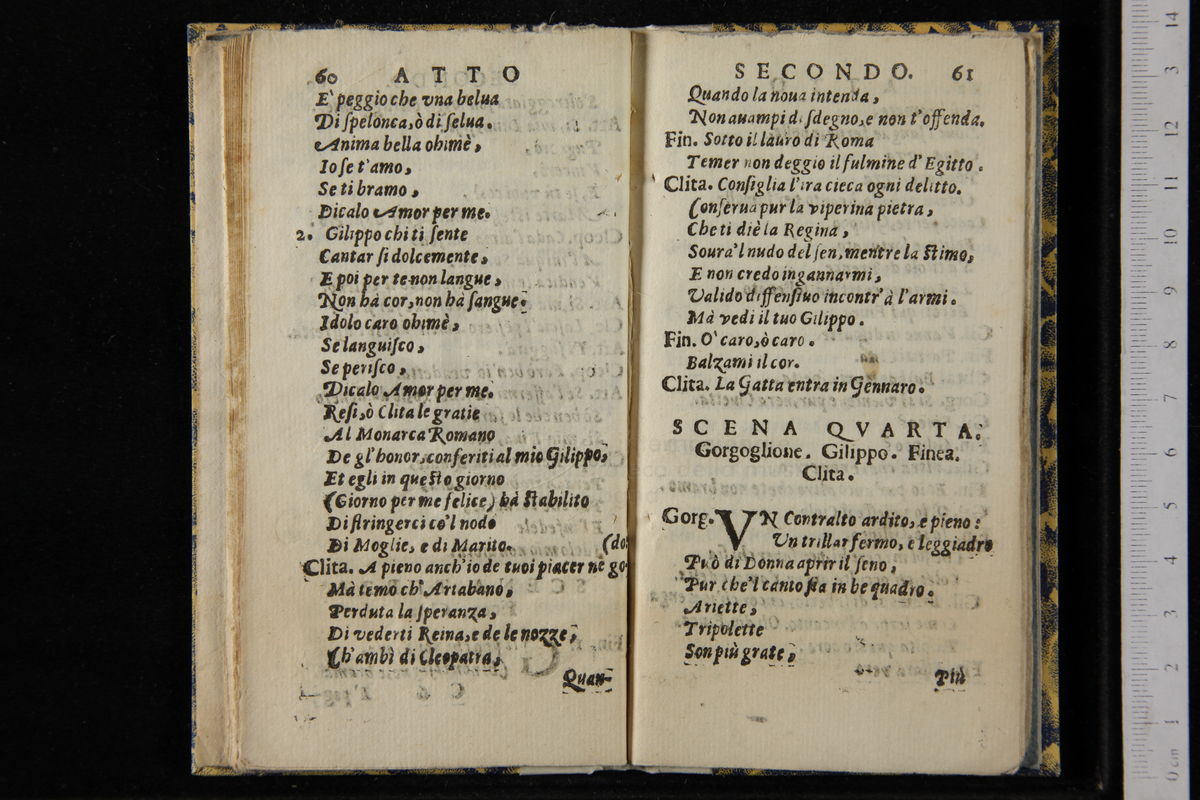 60 ATTO
E' peggio che vna belua
Di ſpelonca, ò di ſelua.
Anima bella ohimè,
Io ſe t'amo,
Se ti bramo,
Dicalo Amor per me.
2. Gilippo chi ti ſente
Cantar ſi dolcemente,
E poi per te non langue,
Non hà cor, non hà ſangue.
Idolo caro ohimè,
Se languiſco,
Se periſco,
Dicalo Amor per me.
Reſi, ò Clita le gratie
Al Monarca Romano
De gl'honor, conferiti al mio Gilippo,
Et egli in queſto giorno
(Giorno per me felice) hà ſtabilito
Di ſtringerci co'l nodo
Di Moglie, e di Marito. (do:
Clita. A pieno anch'io de tuoi piacer ne go-
Mà temo ch' Artabano,
Perduta la ſperanza,
Di vederti Reina, e de le nozze,
Ch'ambì di Cleopatra,
Quan-
SECONDO. 61
Quando la noua intenda,
Non auampi di ſdegno, e non t'offenda.
Fin. Sotto il lauro di Roma
Temer non deggio il fulmine d'Egitto.
Clita. Conſiglia l'ira cieca ogni delitto.
Conſerua pur la viperina pietra,
Che ti diè la Regina,
Soura'l nudo del ſen, mentre la ſtimo,
E non credo ingannarmi,
Valido diffenſiuo incontr'à l'armi.
Mà vedi il tuo Gilippo.
Fin. O' caro, ò caro.
Balzami il cor.
Clita. La Gatta entra in Gennaro.
SCENA QVARTA.
Gorgoglione. Gilippo. Finea.
Clita.
Gorg. VN Contralto ardito, e pieno:
Un trillar fermo, e leggiadro
Può di Donna aprir il ſeno,
Pur che'l canto ſia in be quadro.
Ariette,
Tripolette
Son più grate,
Più